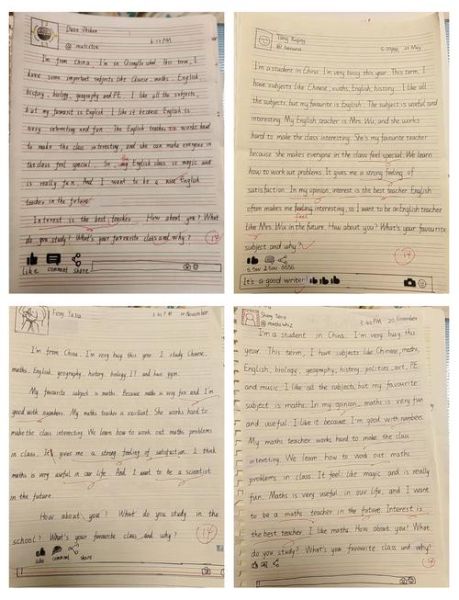 5:11 PM
I'm from China. I'm in Qiangtie what this term, I
have some important subjects like Chinese, maths, English,
history, biology, geography and PE. I like all the subjects,
but my favourite is English. I like it because English is
very interesting and fun. The English teacher works hard
to make the class interesting, and she can make everyone in
the class feel special. In my English class is magic and
is really fun. And I want to be a English
teacher in the future.
Interest is the best teacher. How about you? What
do you study? What's your favourite class and why?
17
Like comment share
Tang
5:20PM 20 May
I'm a student in China. I'm very busy this year. This term, I
have subjects like Chinese, maths, English, history. I like all
the subjects, but my favourite is English. The subject is useful and
interesting. My English teacher is Mrs. Wu, and she works
hard to make the class interesting. She's my favourite teacher
because she makes everyone in the class feel special. We learn
how to work out problems. It gives me a strong feeling of
satisfaction. In my opinion, interest is the best teacher. English
often makes me feeling interesting, so I want to be an English teacher
like Mrs Wu in the future. How about you? What's your favourite
subject and why?
17
It's a good writer!
Feng
November
I'm from China. I'm very busy this year. I study Chinese,
maths, English, geography, history, biology, IT and have gym.
My favourite subject is maths. Because maths is very fun and I'm
good with numbers. My maths teacher is excellent. She works hard to
make the class interesting. We learn how to work out maths problems
in class. It gives me a strong feeling of satisfaction. I think
maths is very useful in our life. And I want to be a scientist
in the future.
How about you? What do you study in the
school? What's your favourite class and why?
17
like comment share
5:40PM 20 November
I'm a student in China. I'm very busy this
year. This term, I have subjects like Chinese, maths,
English, biology, geography, history, politics, art, PE
and music. I like all the subjects, but my favourite
subject is maths. In my opinion, maths is very fun
and useful. I like it because I'm good with number.
My maths teacher works hard to make the class
interesting. We learn how to work out maths
problems in class. It feel like magic and is really
fun. Maths is very useful in our life, and I want
to be a maths teacher in the future. Interest is
the best teacher. I like maths. How about you? What
do you study? What's you favourite class and why?